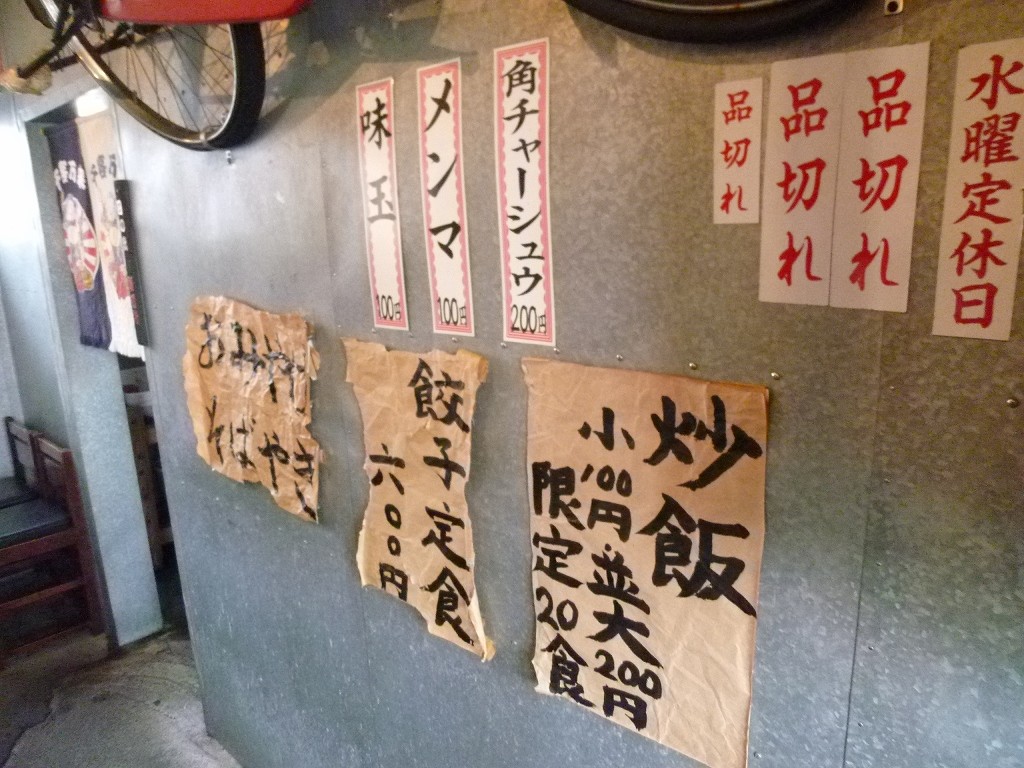 水曜定休日
品切れ
品切れ
品切れ
角チャーシュウ 200円
メンマ 100円
味玉 100円
炒飯
小100円並大200円
限定20食
餃子定食
六〇〇円
そばやき